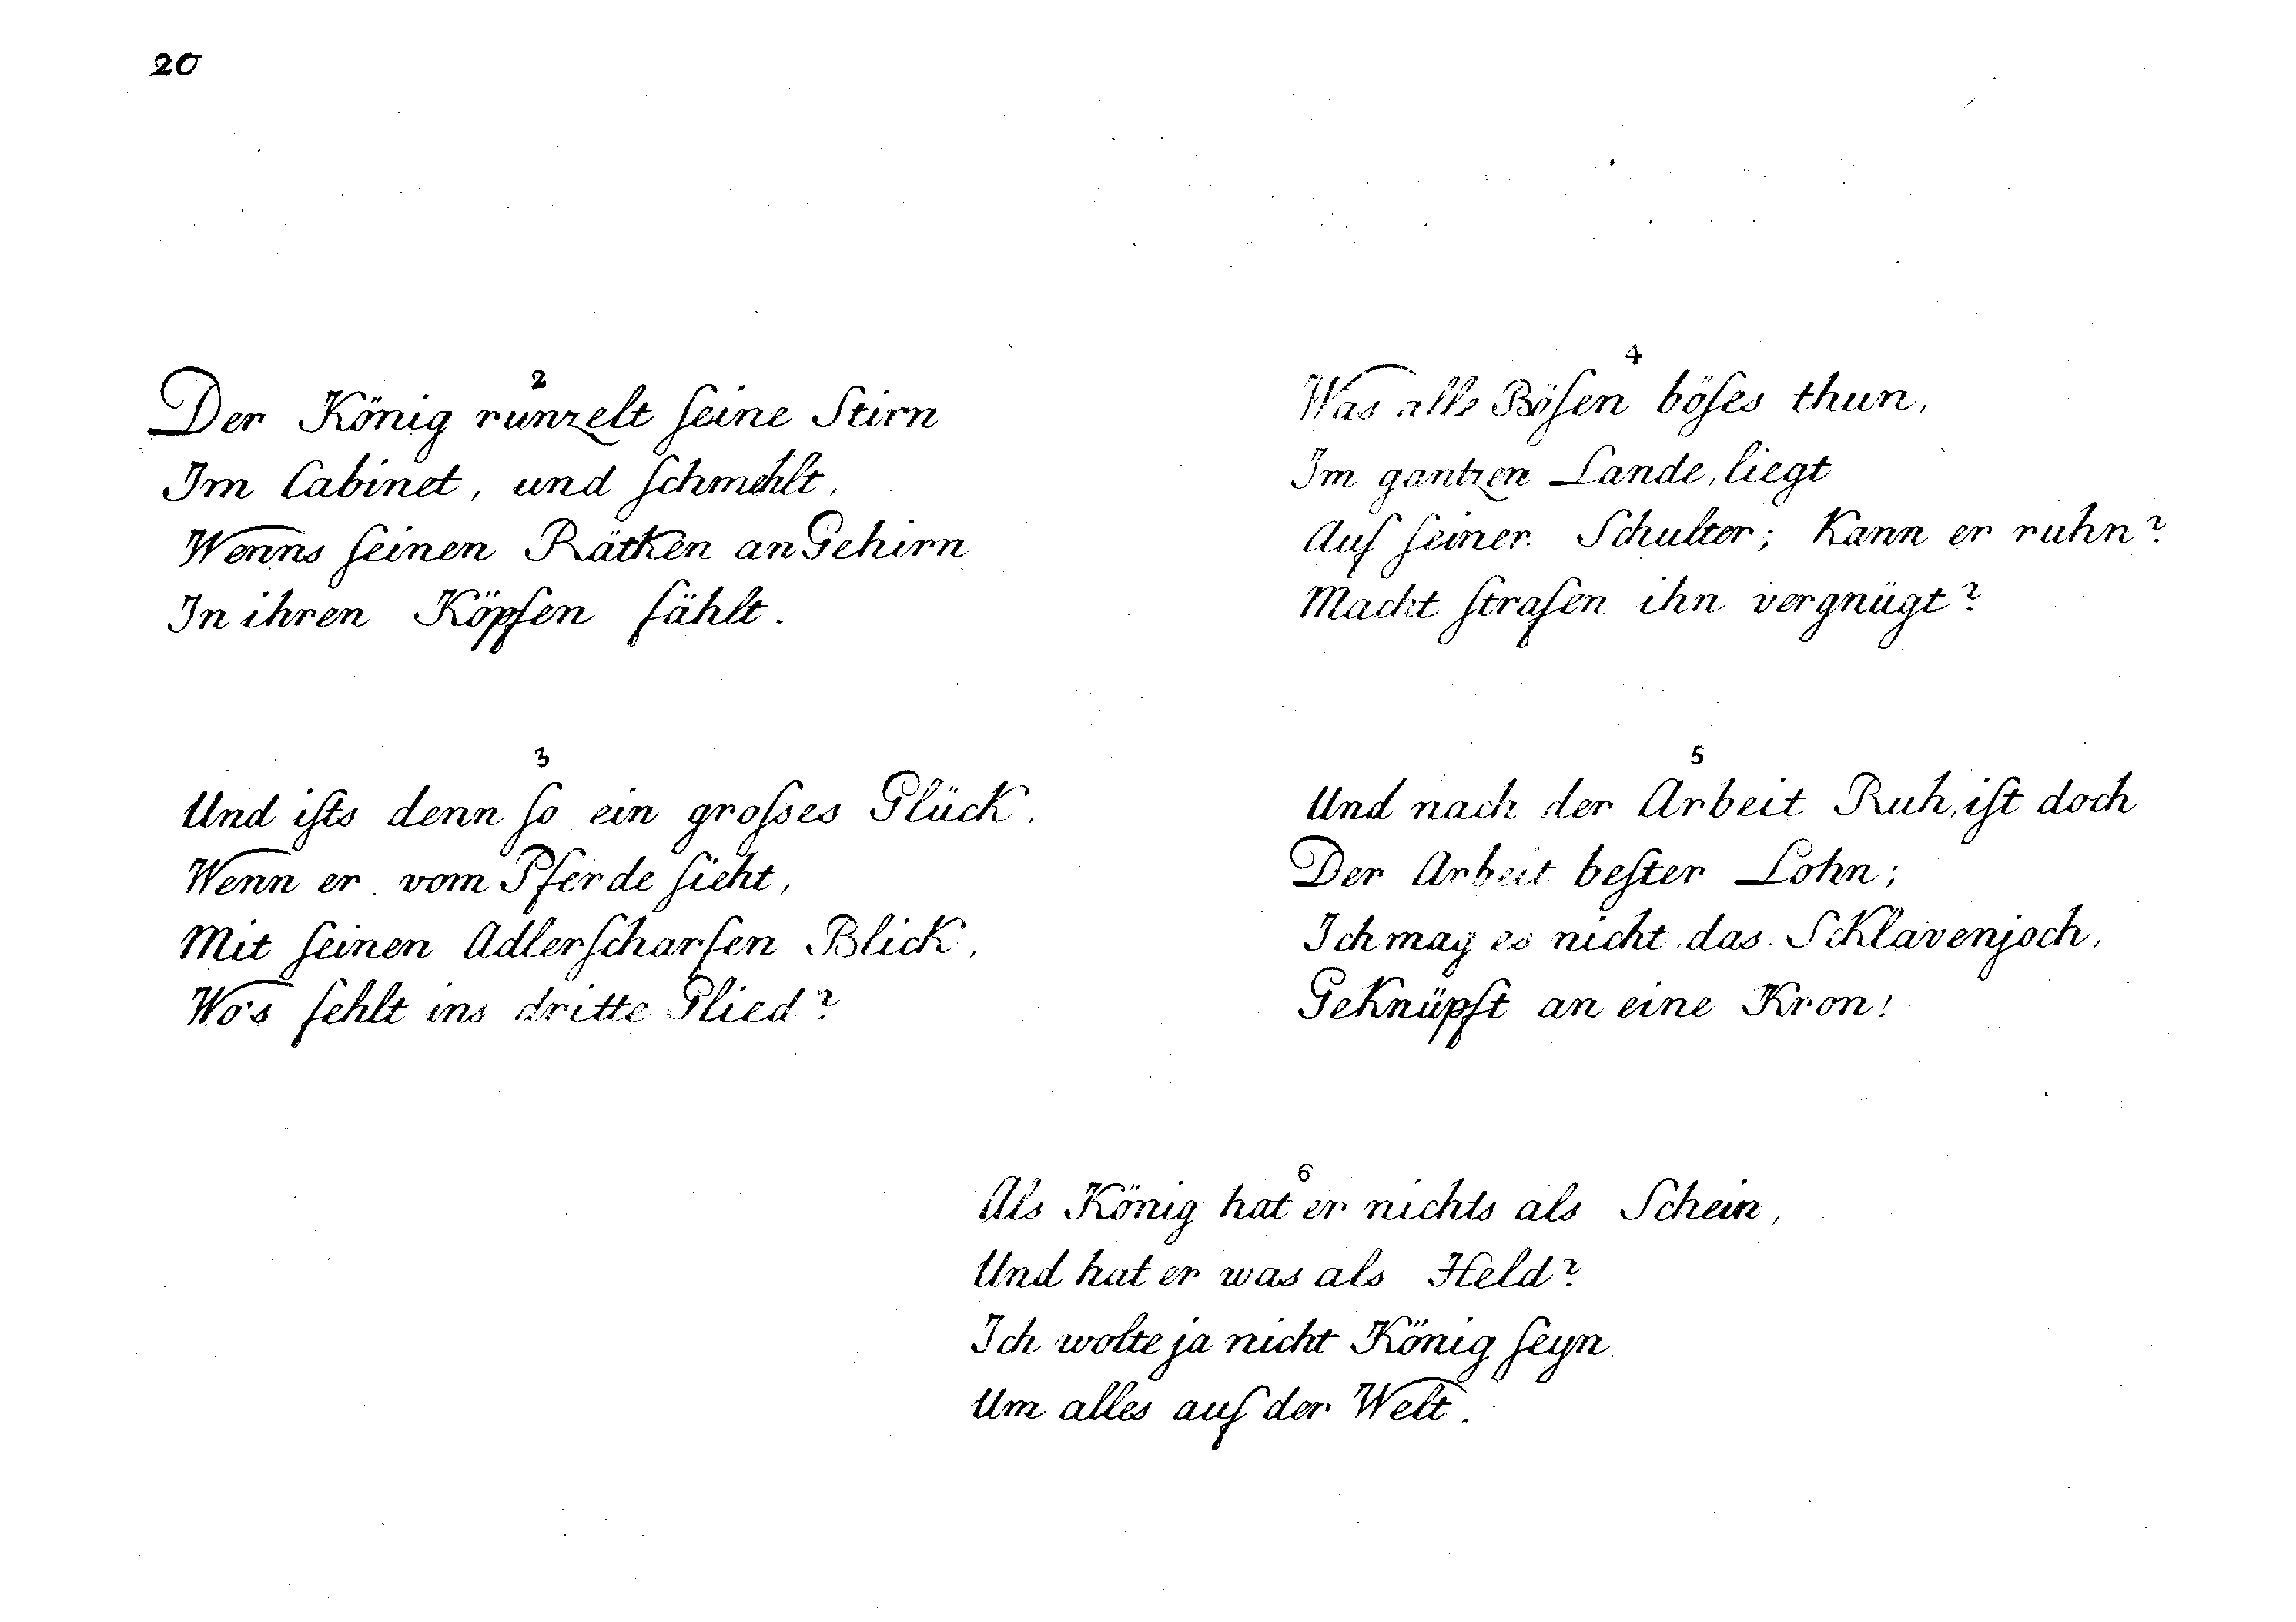 20
2
Der König runzelt ſeine Stirn
Im Cabinet, und ſchmehlt,
Wenns ſeinen Räthen an Gehirn
In ihren Köpfen fählt.
3
Und iſts denn ſo ein groſses Glück,
Wenn er vom Pferde ſieht,
Mit ſeinen Adlerſcharfen Blick,
Wo's fehlt ins dritte Glied?
4
Was alle Böſen böſes thun,
Im gantzen Lande, liegt
Auf ſeiner Schulter; Kann er ruhn?
Macht ſtrafen ihn vergnügt?
5
Und nach der Arbeit Ruh, iſt doch
Der Arbeit beſter Lohn;
Ich mag es nicht das Sklavenjoch,
Geknüpft an eine Kron!
6
Als König hat er nichts als Schein,
Und hat er was als Held?
Ich wolte ja nicht König ſeyn.
Um alles auf der Welt.